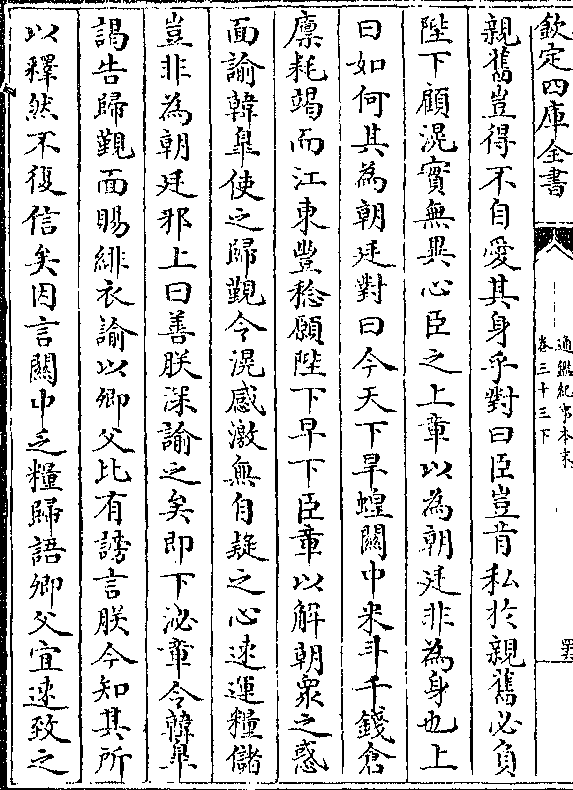 欽定四庫全書
通鑑紀事本末
卷三十三下
親舊豈得不自愛其身乎對曰臣豈肯私於親舊必負
陛下顧滉實無異心臣之上章以為朝廷非為身也上
曰如何其為朝廷對曰今天下旱蝗關中米斗千錢倉
廪耗竭而江東豐稔願陛下早下臣章以解朝衆之惑
面諭韓臯使之歸覲令滉感激無自疑之心速運糧儲
豈非為朝廷邪上曰善朕深諭之矣即下泌章令韓臯
謁告歸覲面賜緋衣諭以卿父比有謗言朕今知其所
以釋然不復信矣因言關中乏糧歸語卿父宜速致之